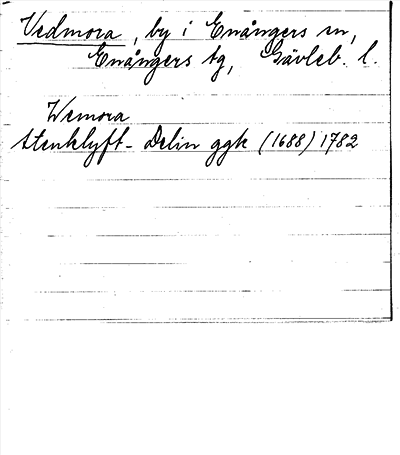 Vedmora, by i Enångers sn,
Enångers tg, Gävleb. l.
Wemora
Stenklyft- Delin ggk (1688) 1782